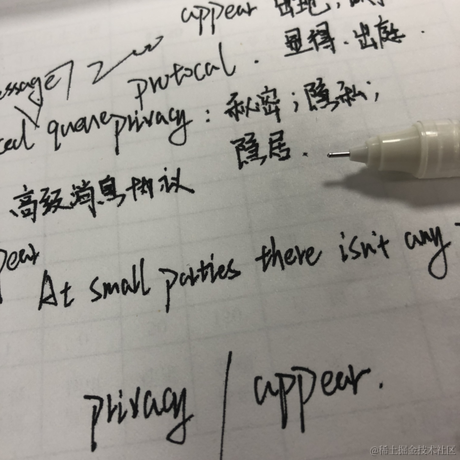 appear 出现;
显得.出庭.
message 7200
protocal.
queue privacy:秘密;隐私;
隐居.
高级消息协议
pear
At small parties there isn't any
privacy / appear.
@稀土掘金技术社区